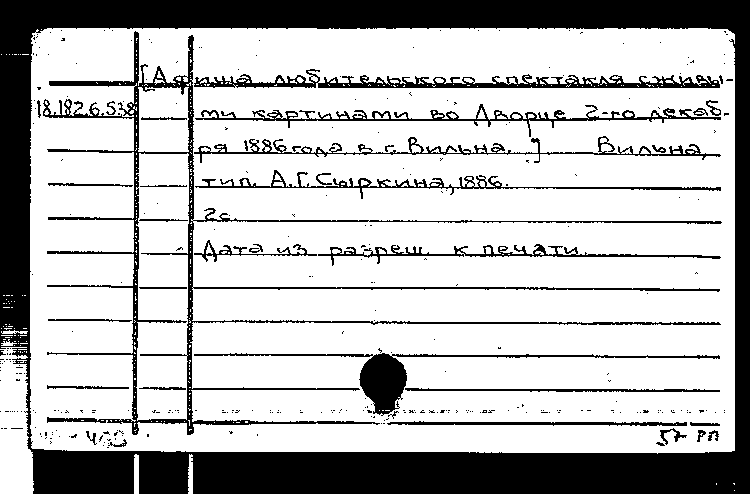 [Афиша любительского спектакля с живы-
18.182.6.538 ми картинами во Дворце 2-го декаб-
ря 1886 года в г. Вильна.] Вильна,
тип. А.Г. Сыркина, 1886.
2с.
Дата из разреш. к печати.
57 РП